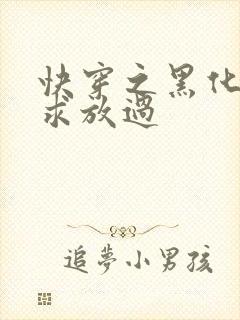 快穿之黑化
求放過
追夢小男孩